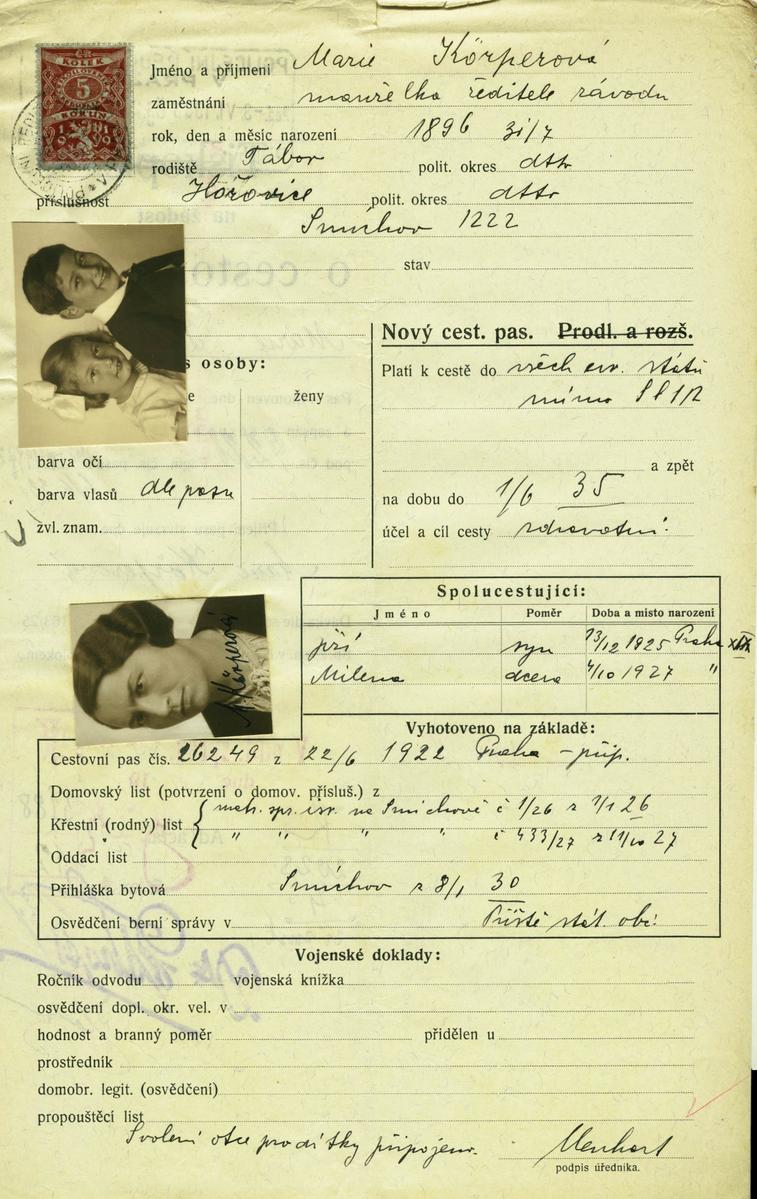 KOLEK
5
KORUN
1919
Jméno a příjmení Marie Körperová
zaměstnání manželka ředitele závodu
rok, den a měsíc narození 1896 31/7
rodiště Tábor polit. okres dtto
příslušnost Hořovice polit. okres dtto
Smíchov 1222
stav
Nový cest. pas. Prodl. a rozš.
s osoby:
Platí k cestě do všech evr. států
ženy
mimo SSSR
barva očí
a zpět
barva vlasů dle pasu
na dobu do 1/6 35
zvl. znam.
účel a cíl cesty zdravotní.
Spolucestující:
Jméno Poměr Doba a místo narození
Jiří syn 13/12 1925 Praha XIX
Milena dcera 4/10 1927 "
M. Körperová
Vyhotoveno na základě:
Cestovní pas čís. 26249 z 22/6 1922 Praha – přip.
Domovský list (potvrzení o domov. přísluš.) z
Křestní (rodný) list { matr. spr. isr. na Smíchově č 1/26 z 7/1 26
" " " " č 433/27 z 11/10 27
Oddací list
Přihláška bytová Smíchov z 8/1 30
Osvědčení berní správy v Příště stát. obč.
Vojenské doklady:
Ročník odvodu vojenská knížka
osvědčení dopl. okr. vel. v
hodnost a branný poměr přidělen u
prostředník
domobr. legit. (osvědčení)
propouštěcí list
Svolení otce pro dítky připojeno. Menhart
podpis úředníka.